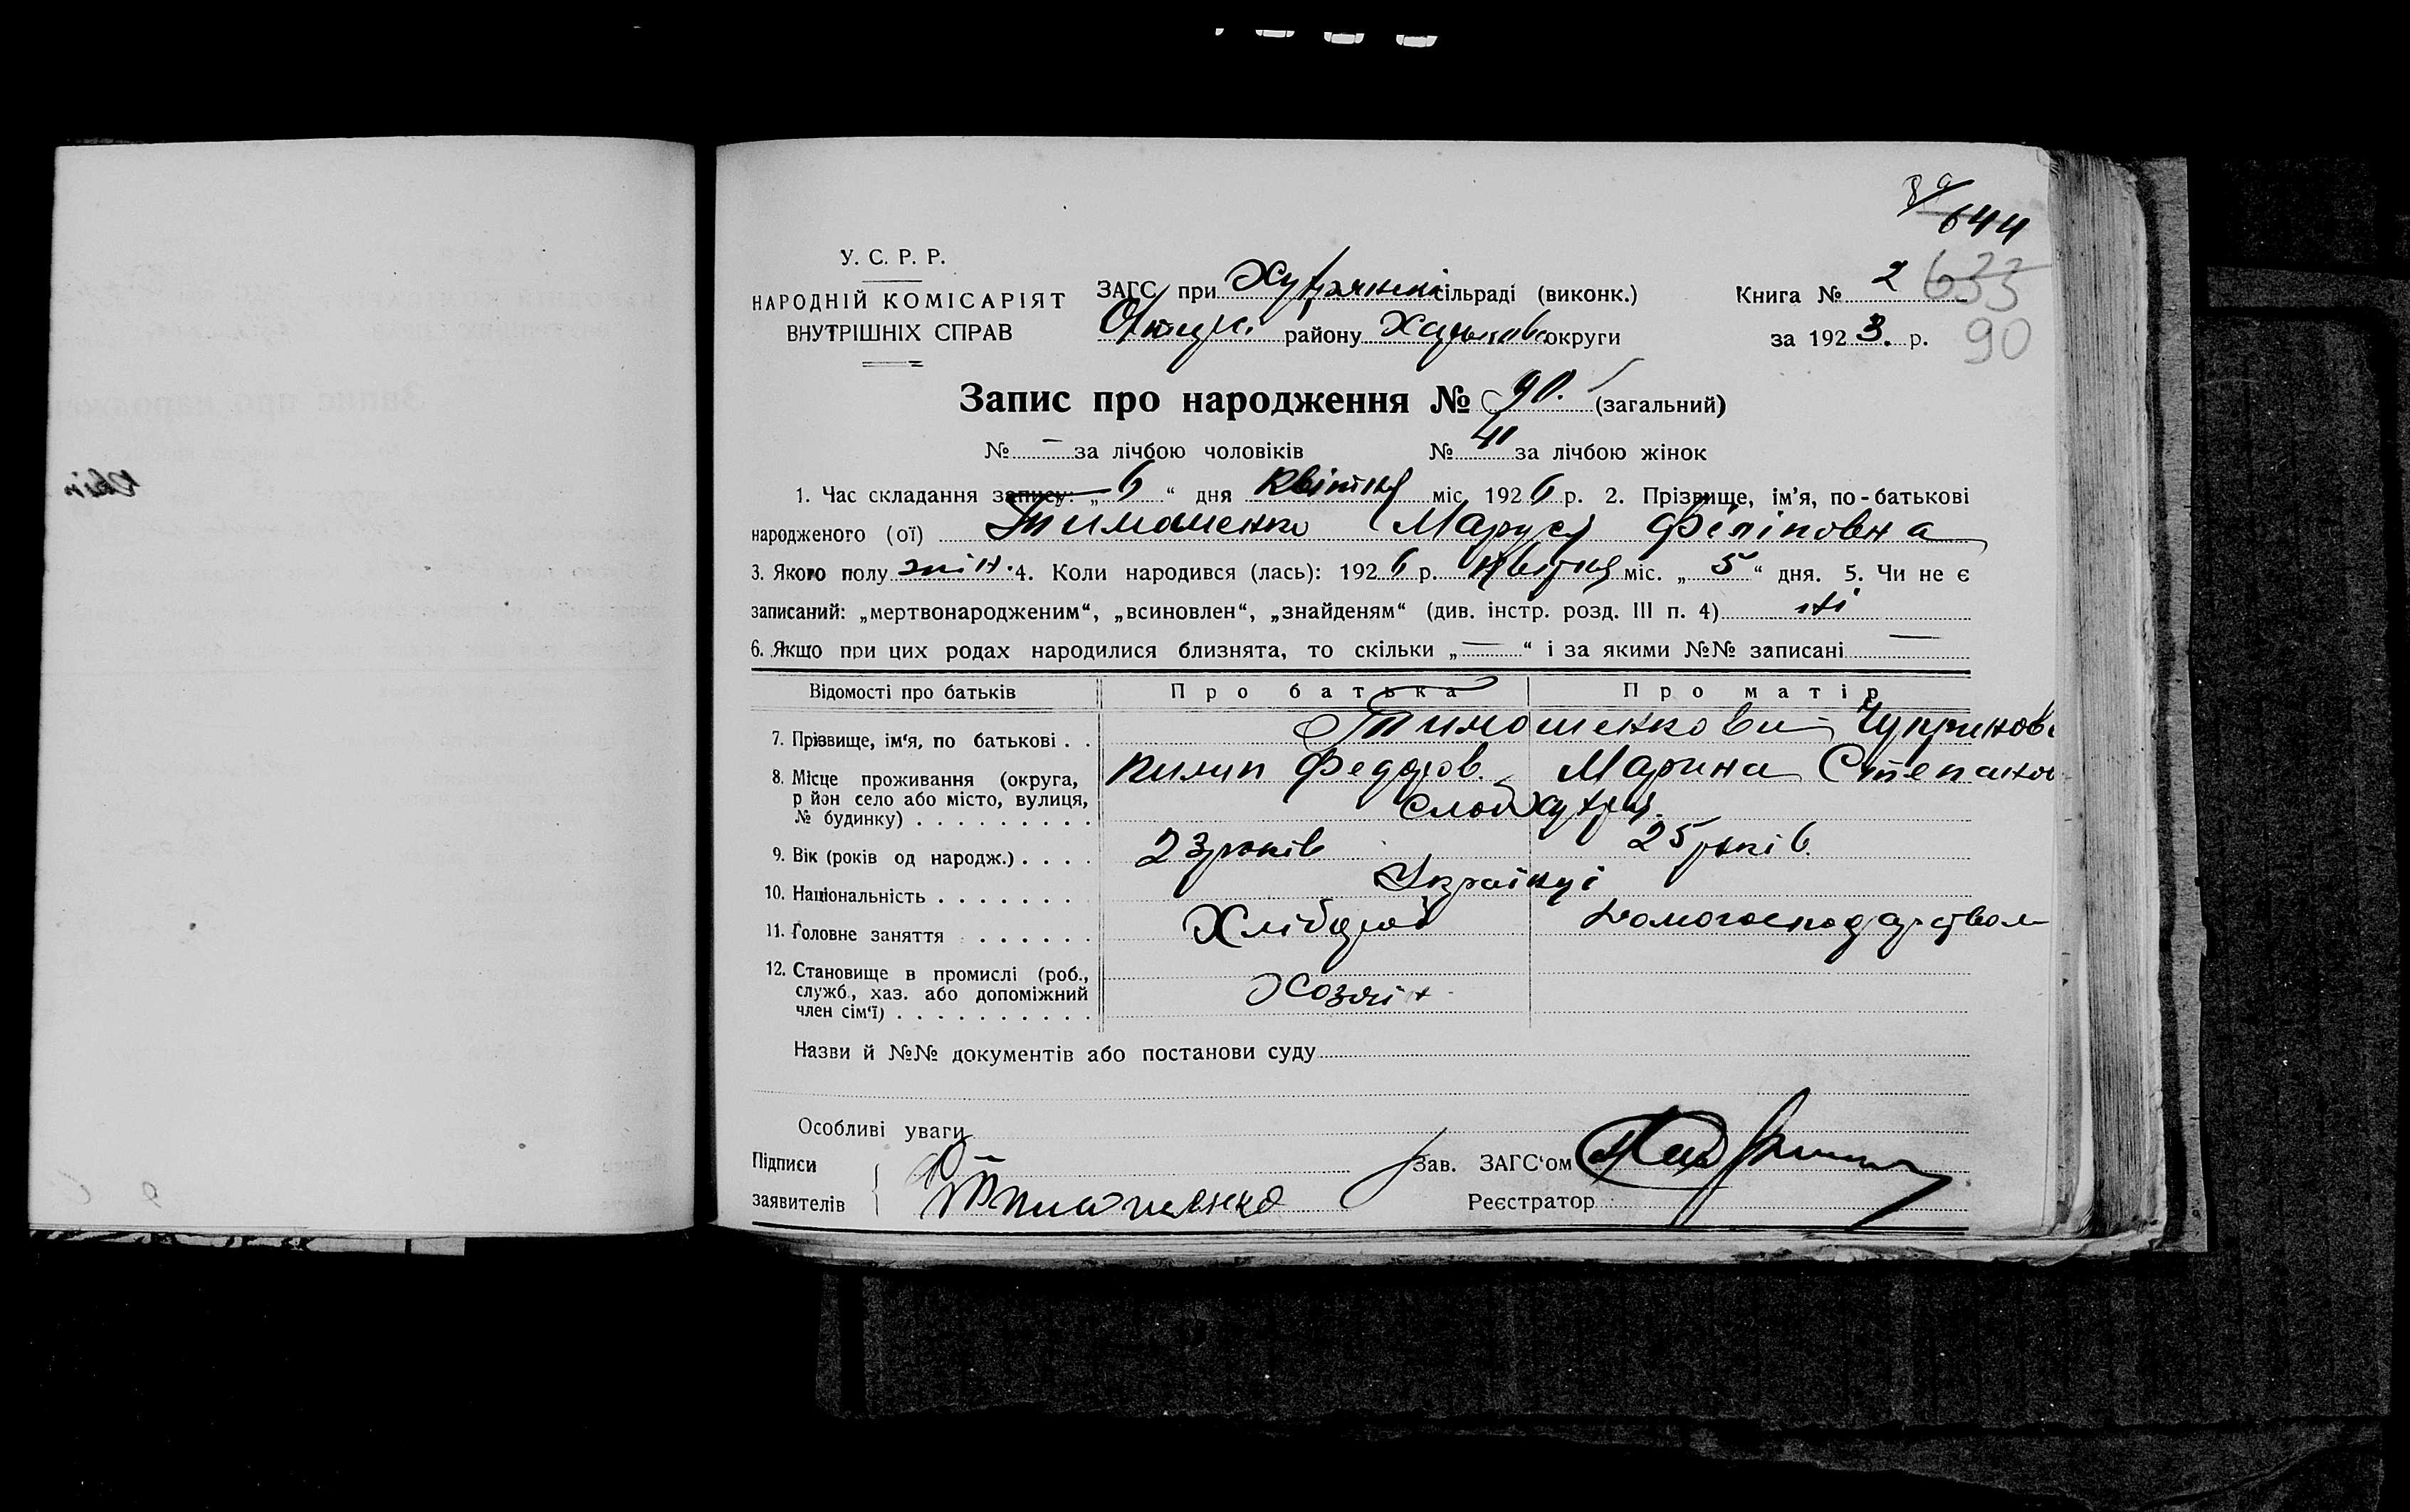 644
У. С. Р. Р.
НАРОДНІЙ КОМІСАРІЯТ
ВНУТРІШНІХ СПРАВ
ЗАГС при сільраді (виконк.)
району округи
Книга № 2 633
за 1923. р. 90
Запис про народження № 90. (загальний)
№ — за лічбою чоловіків № 41 за лічбою жінок
1. Час складання запису: „ 6 “ дня Квітня міс. 1926 р. 2. Прізвище, ім’я, по-батькові
народженого (ої) Тимошенко Маруся Філіповна
3. Якого полу жін. 4. Коли народився (лась): 1926 р. Квітня міс. „ 5 “ дня. 5. Чи не є
записаний: „мертвонародженим“, „всиновлен“, „знайденям“ (див. інстр. розд. III п. 4) ні
6. Якщо при цих родах народилися близнята, то скільки „ — “ і за якими №№ записані —
Відомості про батьків Про батька Про матір
7. Прізвище, ім‘я, по батькові . . Тимошенкови
8. Місце проживання (округа, Пилип Федоров. Марина Степанов
р йон село або місто, вулиця,
№ будинку) . . . . . . . . . Слоб
9. Вік (років од народж.) . . . . 23 років 25 років
10. Національність . . . . . . . Українці
11. Головне заняття . . . . . . Хлібороб домогосподарством
12. Становище в промислі (роб.,
служб., хаз. або допоміжний Хозяін
член сім‘ї) . . . . . . . . . .
Назви й №№ документів або постанови суду
Особливі уваги
Підписи Зав. ЗАГС‘ом
заявителів Тимошенко Реєстратор